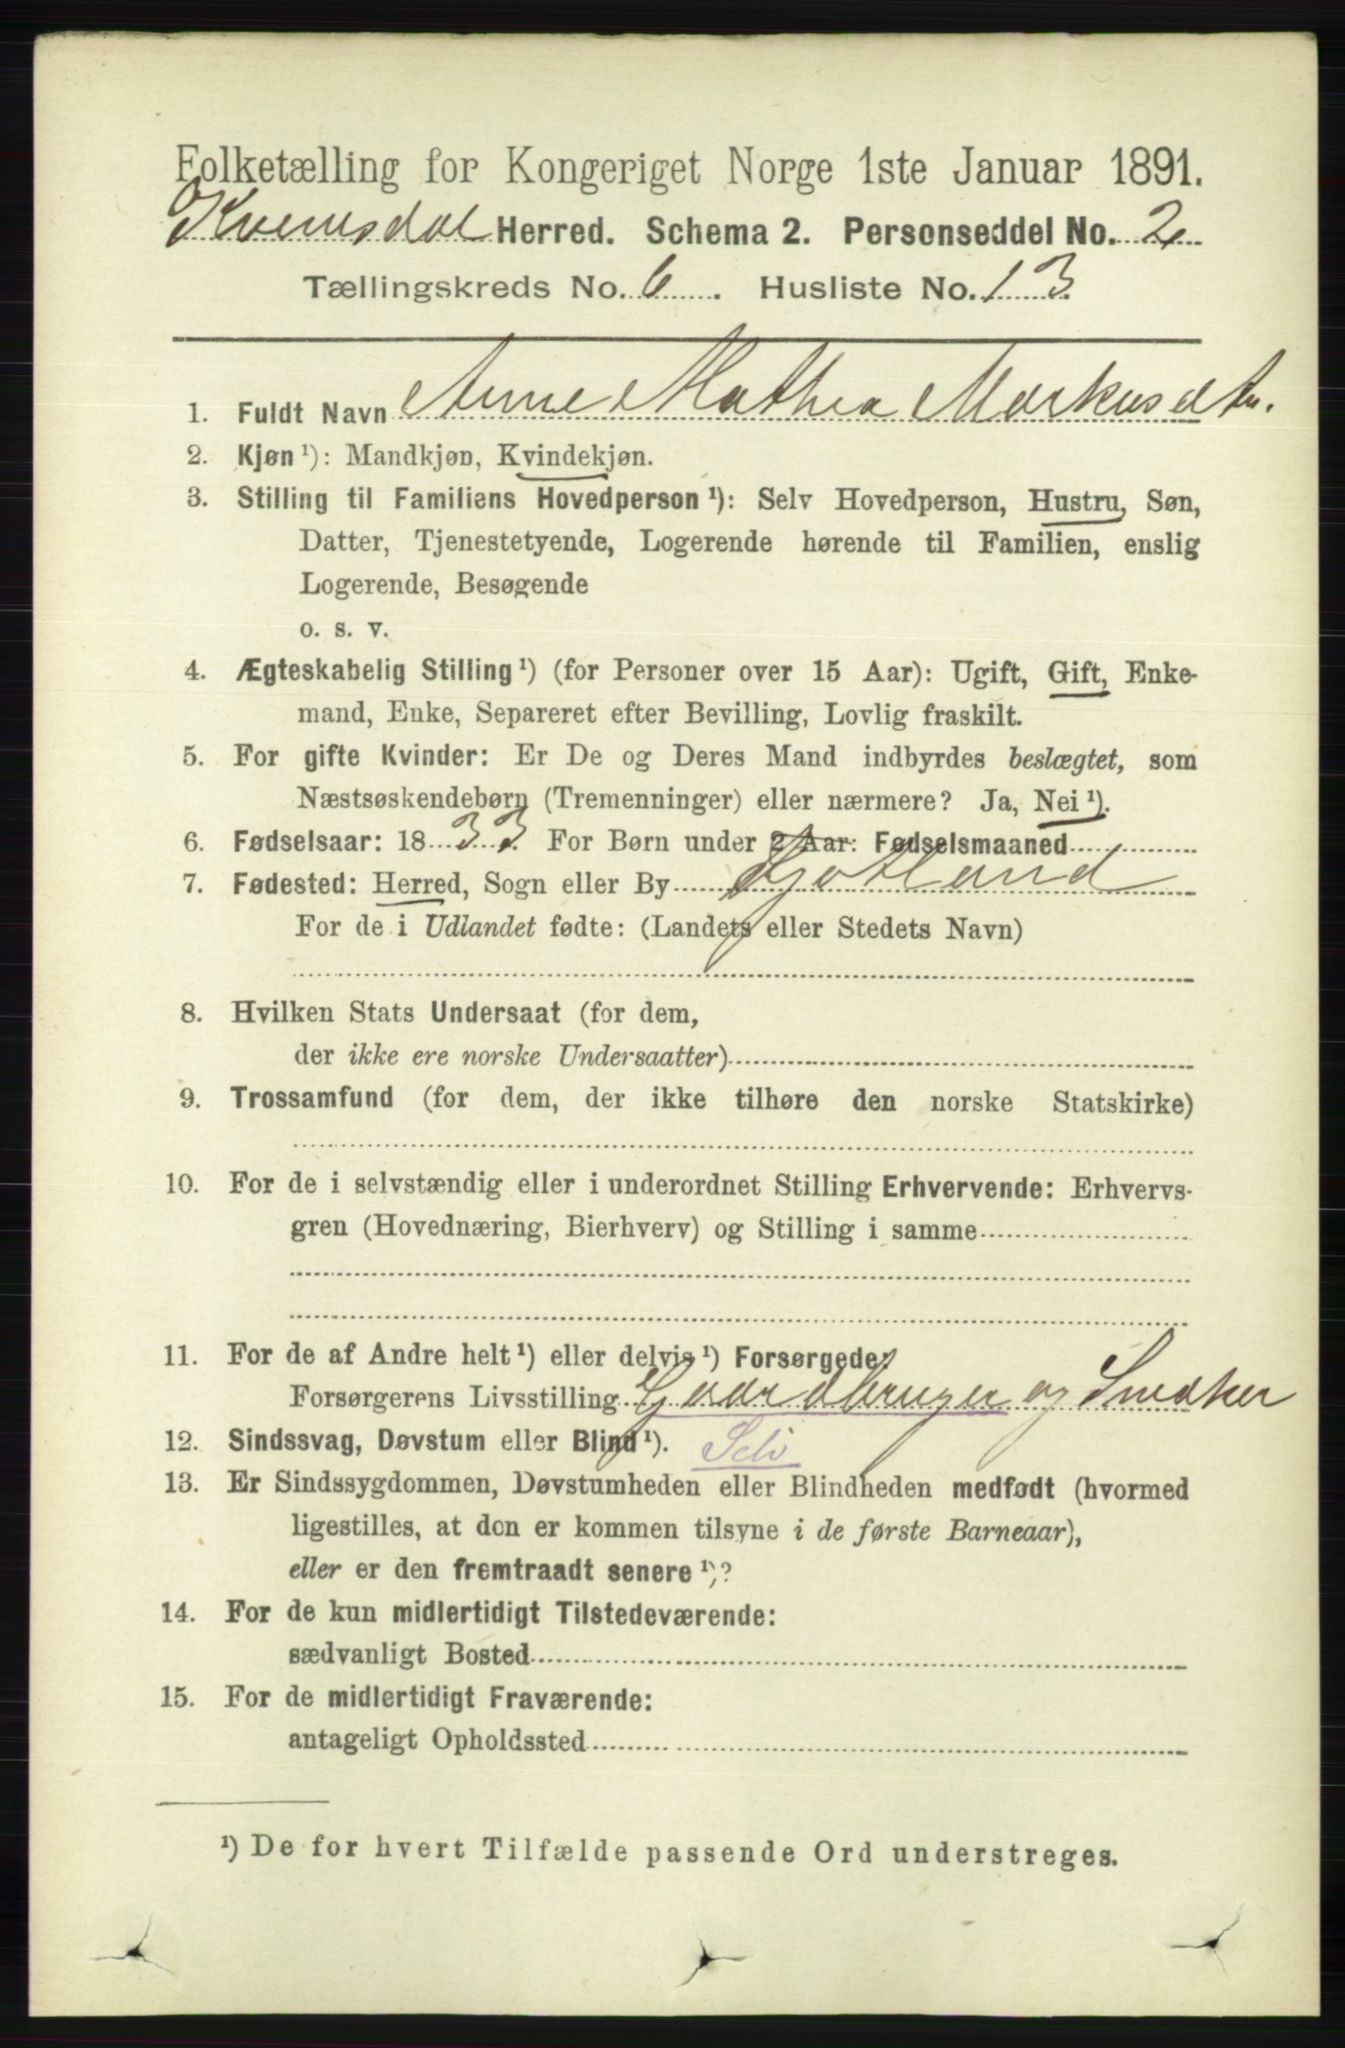 Folketælling for Kongeriget Norge 1ste Januar 1891.
Kvernes Herred. Schema 2. Personseddel No. 2
Tællingskreds No. 6. Husliste No. 13
1. Fuldt Navn Anne Mathea Markusdtr.
2. Kjøn ¹): Mandkjøn, Kvindekjøn.
3. Stilling til Familiens Hovedperson ¹): Selv Hovedperson, Hustru, Søn,
Datter, Tjenestetyende, Logerende hørende til Familien, enslig
Logerende, Besøgende
o. s. v.
4. Ægteskabelig Stilling ¹) (for Personer over 15 Aar): Ugift, Gift, Enke-
mand, Enke, Separeret efter Bevilling, Lovlig fraskilt.
5. For gifte Kvinder: Er De og Deres Mand indbyrdes beslægtet, som
Næstsøskendebørn (Tremenninger) eller nærmere? Ja, Nei ¹).
6. Fødselsaar: 1833. For Børn under 2 Aar: Fødselsmaaned
7. Fødested: Herred, Sogn eller By
For de i Udlandet fødte: (Landets eller Stedets Navn)
8. Hvilken Stats Undersaat (for dem,
der ikke ere norske Undersaatter)
9. Trossamfund (for dem, der ikke tilhøre den norske Statskirke)
10. For de i selvstændig eller i underordnet Stilling Erhvervende: Erhvervs-
gren (Hovednæring, Bierhverv) og Stilling i samme
11. For de af Andre helt ¹) eller delvis ¹) Forsørgede:
Forsørgerens Livsstilling Gaardbruger og Snedker
12. Sindssvag, Døvstum eller Blind ¹). Selv
13. Er Sindssygdommen, Døvstumheden eller Blindheden medfødt (hvormed
ligestilles, at den er kommen tilsyne i de første Barneaar),
eller er den fremtraadt senere ¹)?
14. For de kun midlertidigt Tilstedeværende:
sædvanligt Bosted
15. For de midlertidigt Fraværende:
antageligt Opholdssted
¹) De for hvert Tilfælde passende Ord understreges.